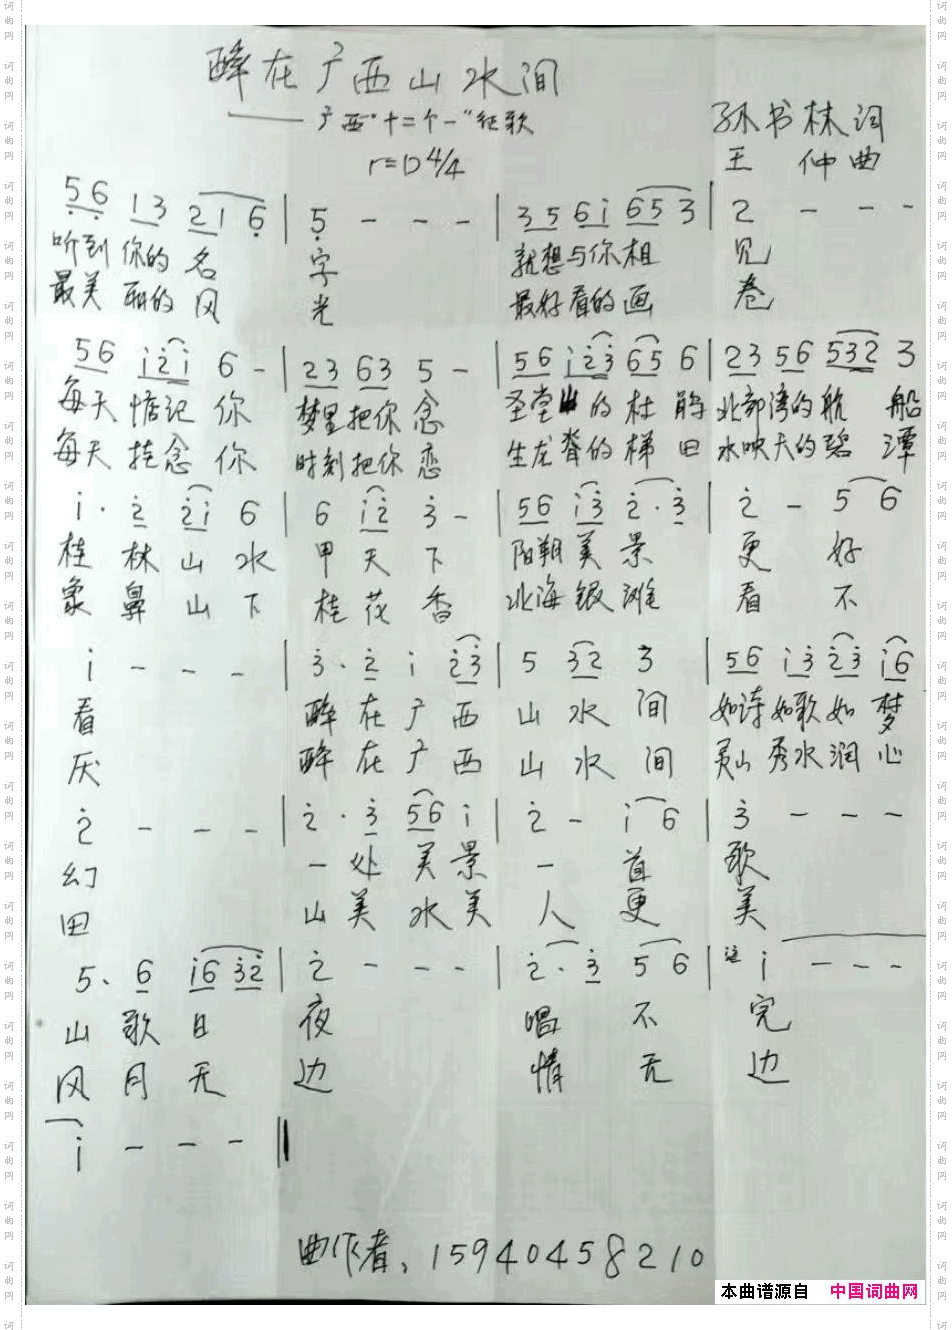 醉在广西山水间
—— 广西"十二个一"征歌
孙书林词
r=D 4/4
王 仲曲
5 6 1 3 2 1 6 | 5 - - - | 3 5 6 i 6 5 3 | 2 - - -
听到 你的 名 字 就想与你相 见
最美 的 风 光 最好看的画 卷
5 6 i 2 i 6 - | 2 3 6 3 5 - | 5 6 i 2 3 6 5 6 | 2 3 5 6 5 3 2 3
每天 惦记 你 梦里把你 念 圣堂山的杜鹃 北部湾的航 船
每天 挂念 你 时刻把你 恋 生龙脊的梯田 水映天的碧 潭
i · 2 2 i 6 | 6 i 2 3 - | 5 6 i 3 2 · 3 | 2 - 5 6
桂 林 山 水 甲 天 下 阳朔美 景 更 好
象 鼻 山 下 桂 花 香 北海银滩 看 不
i - - - | 3 · 2 i 2 3 | 5 3 2 3 | 5 6 i 3 2 3 i 6
看 醉 在 广 西 山 水 间 如诗如歌如 梦
厌 醉 在 广 西 山 水 间 灵山秀水润 心
2 - - - | 2 · 3 5 6 i | 2 - i 6 | 3 - - -
幻 一 处 美 景 一 首 歌
田 山 美 水 美 人 更 美
5 · 6 i 6 3 2 | 2 - - - | 2 · 3 5 6 | i - - -
山 歌 日 夜 唱 不 完
风 月 无 边 情 无 边
i - - - ‖
曲作者、15940458210
本曲谱源自 中国词曲网